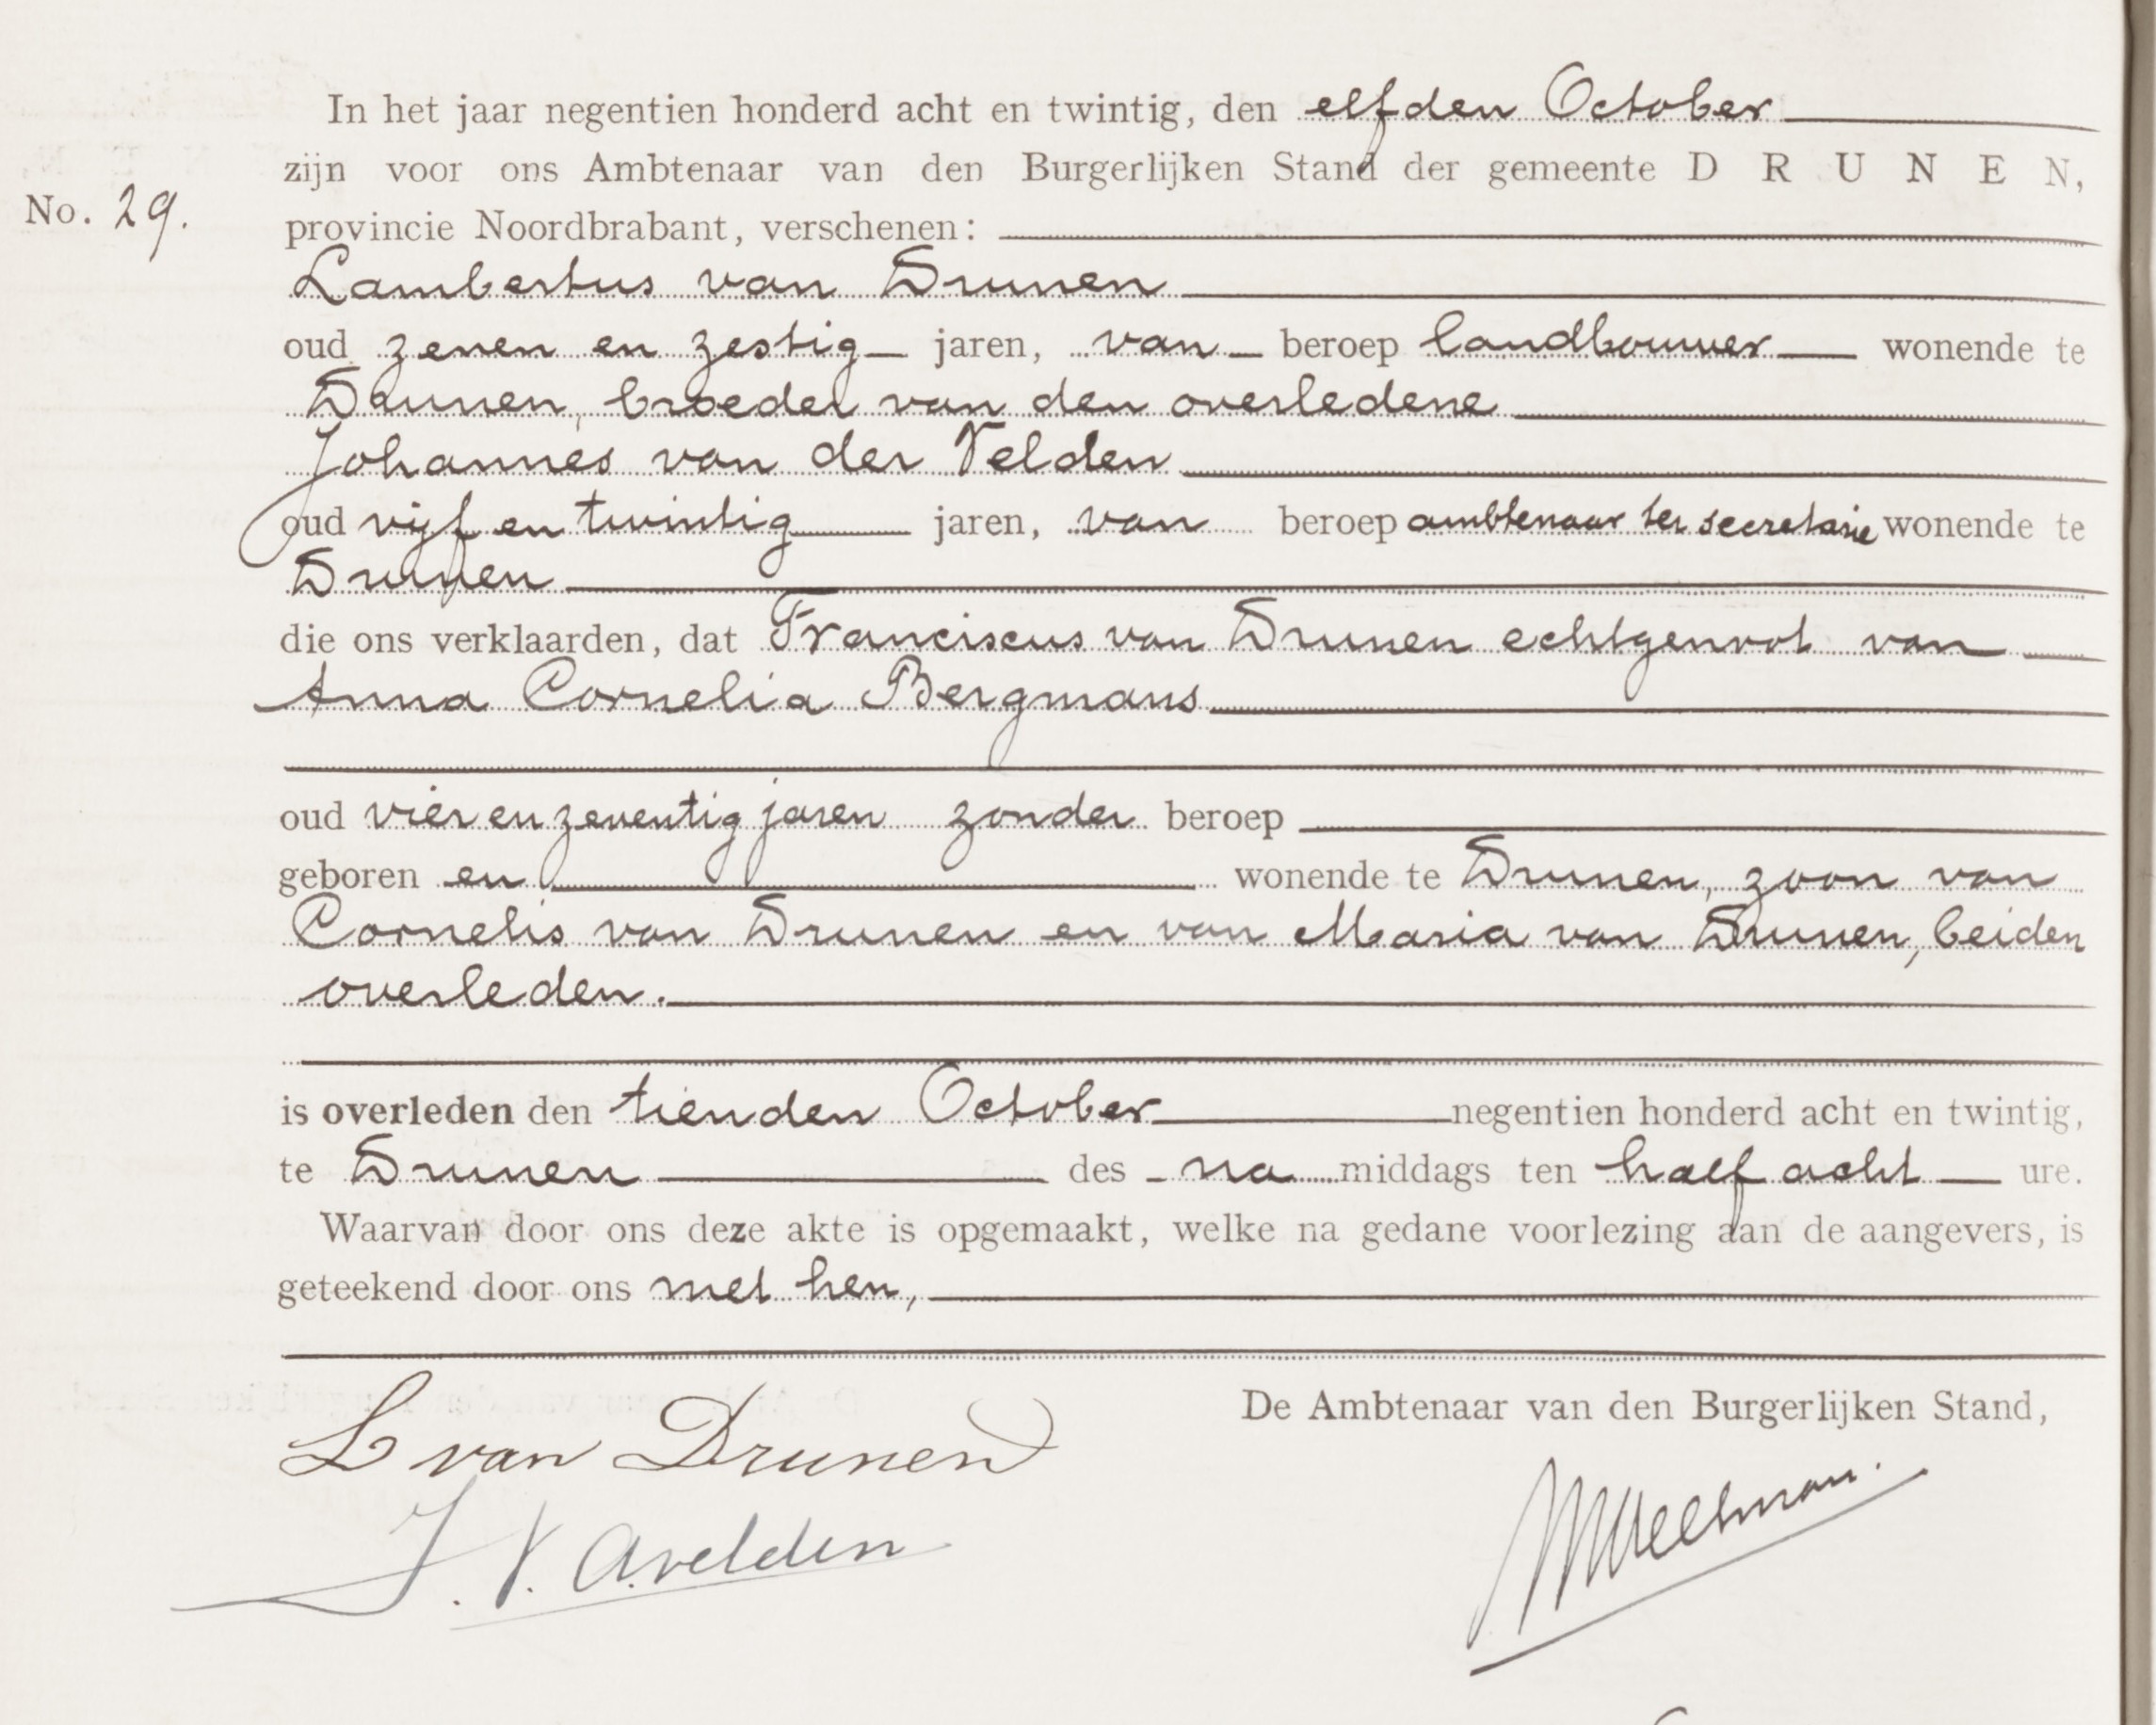 In het jaar negentien honderd acht en twintig, den elfden October
zijn voor ons Ambtenaar van den Burgerlijken Stand der gemeente DRUNEN,
No. 29.
provincie Noordbrabant, verschenen:
Lambertus van Drunen
oud zeven en zestig jaren, van beroep landbouwer wonende te
Drunen, broeder van den overledene
Johannes van der Velden
oud vijf en twintig jaren, van beroep ambtenaar ter secretarie wonende te
Drunen
die ons verklaarden, dat Franciscus van Drunen echtgenoot van
Anna Cornelia Bergmans
oud vier en zeventig jaren zonder beroep
geboren en wonende te Drunen, zoon van
Cornelis van Drunen en van Maria van Drunen, beiden
overleden.
is overleden den tienden October negentien honderd acht en twintig,
te Drunen des na middags ten half acht ure.
Waarvan door ons deze akte is opgemaakt, welke na gedane voorlezing aan de aangevers, is
geteekend door ons met hen,
De Ambtenaar van den Burgerlijken Stand,
L van Drunen
J. V. d. velden